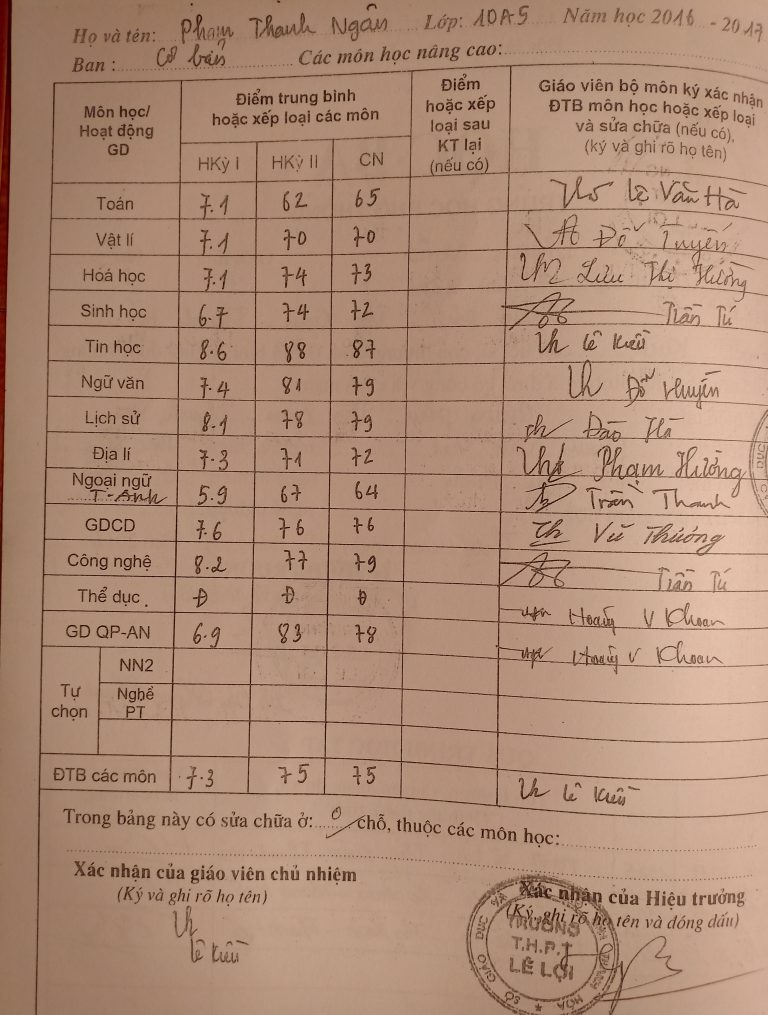 Họ và tên: Phạm Thanh Ngân Lớp: 10A5 Năm học 2016 - 2017
Ban: Cơ bản Các môn học nâng cao:
Môn học/ Hoạt động GD
Điểm trung bình hoặc xếp loại các môn
Điểm hoặc xếp loại sau KT lại (nếu có)
Giáo viên bộ môn ký xác nhận ĐTB môn học hoặc xếp loại và sửa chữa (nếu có), (ký và ghi rõ họ tên)
HKỳ I HKỳ II CN
Toán 7.1 62 65 Lê Văn Hà
Vật lí 7.1 70 70 Đỗ Tuyến
Hoá học 7.1 74 73 Lưu Thị Hường
Sinh học 6.7 74 72 Tiến Tú
Tin học 8.6 88 87 Lê Kiều
Ngữ văn 7.4 81 79 Đỗ Huyền
Lịch sử 8.1 78 79 Đào Hà
Địa lí 7.3 71 72 Phạm Hường
Ngoại ngữ T-Anh 5.9 67 64 Trần Thanh
GDCD 7.6 76 76 Vũ Thương
Công nghệ 8.2 77 79 Tiến Tú
Thể dục Đ Đ Đ Hoàng V Khoan
GD QP-AN 6.9 83 78 Hoàng V Khoan
Tự chọn
NN2
Nghề PT
ĐTB các môn 7.3 75 75 Lê Kiều
Trong bảng này có sửa chữa ở: 0 chỗ, thuộc các môn học:
Xác nhận của giáo viên chủ nhiệm
(Ký và ghi rõ họ tên)
Lê Kiều
Xác nhận của Hiệu trưởng
(Ký, ghi rõ họ tên và đóng dấu)
TRƯỜNG
T.H.P.T
LÊ LỢI